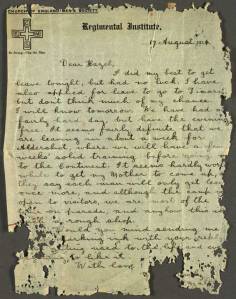 CHURCH OF ENGLAND MEN'S SOCIETY
Regimental Institute,
17 August 1914
Dear Hazel,
I did my best to get
leave tonight, but had no luck. I have
also applied for leave to go to
but don't think much of my chance.
I will know tomorrow. We have had a
fairly hard day but have the evening
free. It seems fairly definite that we
are leaving in about a week for
Aldershot, where we will have a few
weeks' solid training before
to the Continent. It seems hardly worth
while to get my Mother to come up,
they say each man will only get leave
once more, and although this camp is
open to visitors, we are most of the
time on parade, and anyhow this is
rough shop.
would you mind sending me
with your
need to
like it
With love